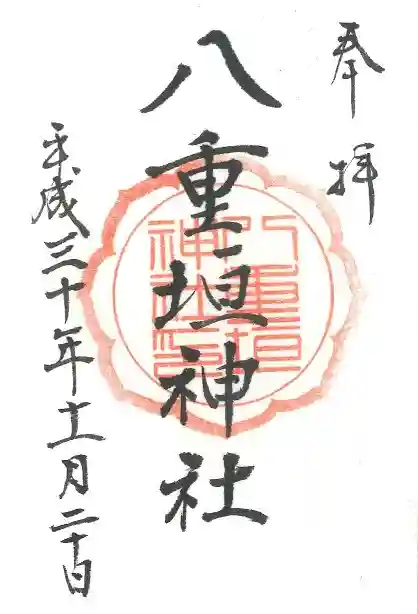 奉拝
八重垣神社
八重垣神社之印
平成三十年十一月二十日